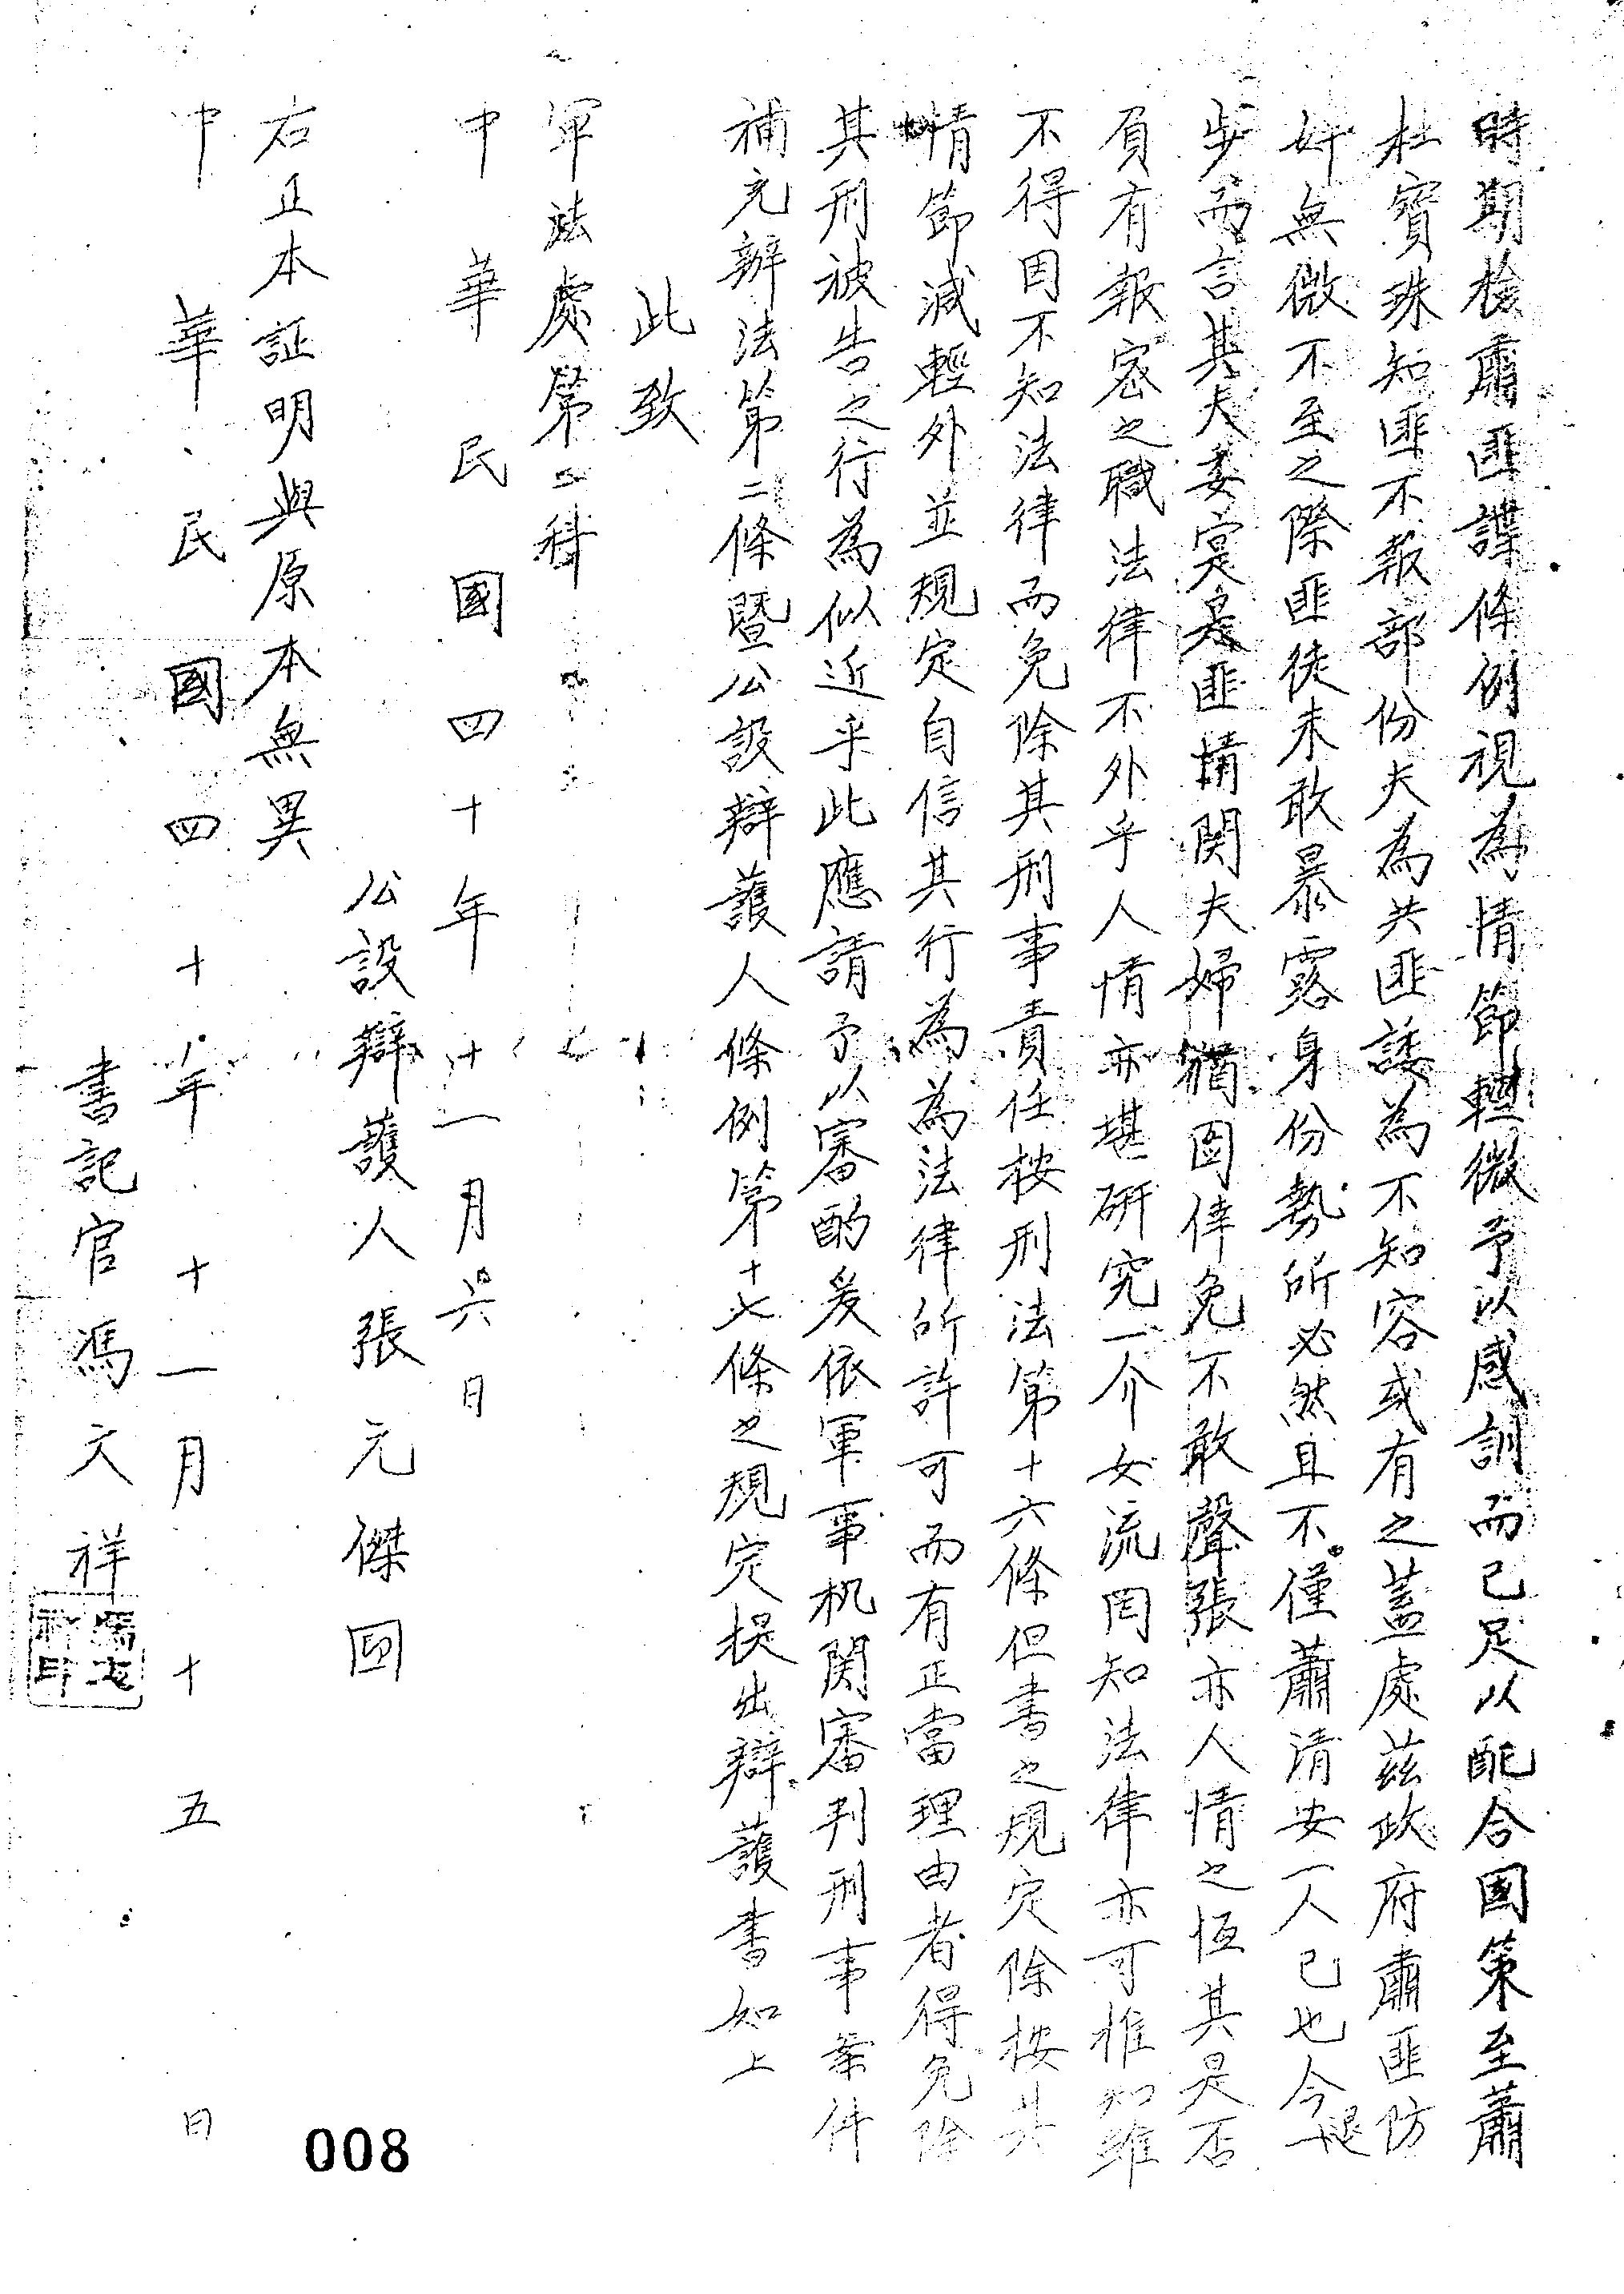 時期檢肅匪諜條例視為情節輕微予以感訓而已足以配合國策至蕭
杜寶珠知匪不報部份夫為共匪諉為不知容或有之蓋處茲政府肅匪防
奸無微不至之際匪徒未敢暴露身份勢所必然且不僅蕭清安一人已也今退一
步而言其夫委寔是匪情関夫婦猶図倖免不敢聲張亦人情之恆其是否
負有報密之職法律不外乎人情亦堪研究一介女流罔知法律亦可推知雖
不得因不知法律而免除其刑事責任按刑法第十六條但書之規定除按其
情節減輕外並規定自信其行為為法律所許可而有正當理由者得免除
其刑被告之行為似近乎此應請予以審酌爰依軍事机関審判刑事案件
補充辦法第二條暨公設辯護人條例第十七條之規定提出辯護書如上
此致
軍法處第二科
中華民國四十年十一月六日
公設辯護人張元傑回
右正本証明與原本無異
中華民國四十年十一月十五日
書記官馮文祥
馮文祥印
008